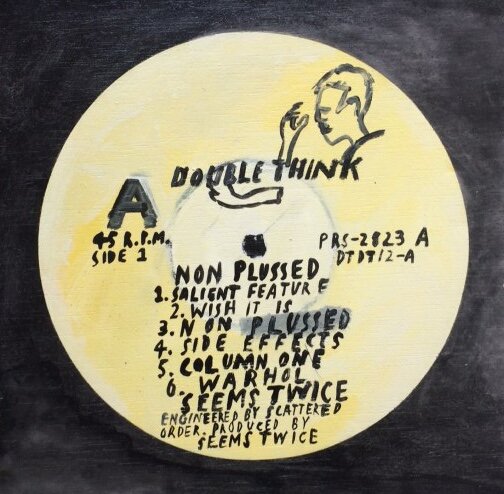 DOUBLE THINK
A
45 R.P.M.
SIDE 1
PRS-2823 A
DTDT12-A
NON PLUSSED
1. SALIENT FEATURE
2. WISH IT IS
3. NON PLUSSED
4. SIDE EFFECTS
5. COLUMN ONE
6. WARHOL
SEEMS TWICE
ENGINEERED BY SCATTERED
ORDER. PRODUCED BY
SEEMS TWICE